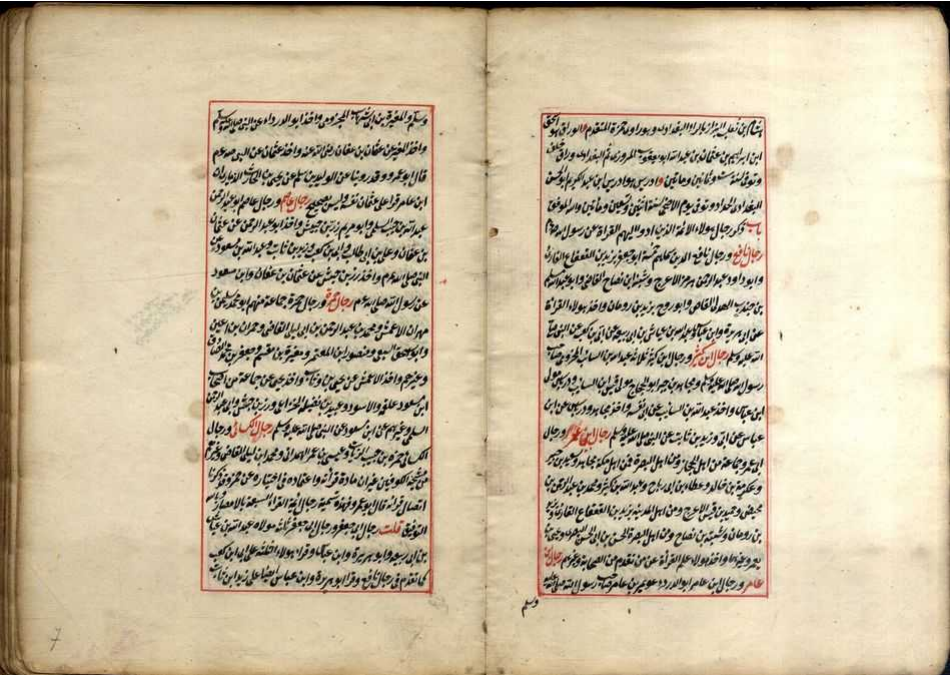 هشام بن ثعلب البزار بالراء البغدادى وهو راوى حمزة المتقدم والوراق هو اسحق
ابن ابراهيم بن عثمان بن عبد الله ابو يعقوب المروزى ثم البغدادى وراق خلف
وتوفى سنة ست وثمانين ومائتين وادريس هو ادريس ابن عبد الكريم ابو الحسن
البغدادى الحداد وتوفى يوم الاضحى سنة اثنتين وتسعين ومائتين والله الموفق
باب ذكر رجال هؤلاء الائمة الذين ادوا اليهم القراءة عن رسول الله صلعم
رجال نافع ورجال نافع الذين سماهم خمسة ابو جعفر يزيد بن القعقاع القارئ
وابو داود عبد الرحمن بن هرمز الاعرج وشيبة ابن نصاح القاضى وابو عبد الله مسلم
بن جندب الهذلى القاص وابو روح يزيد بن رومان واخذ هؤلاء القراءة
عن ابى هريرة وابن عباس وعبد الله بن عياش بن ابى ربيعة عن ابى بن كعب عن النبى صلى
الله عليه وسلم رجال ابن كثير ورجال ابن كثير ثلاثة عبد الله بن السائب المخزومى صاحب
رسول الله صلى الله عليه وسلم ومجاهد بن جبر ابو الحجاج مولى قيس ابن السائب ودرباس مولى
ابن عباس واخذ عبد الله بن السائب عن ابى نفسه واخذ مجاهد ودرباس عن ابن
عباس عن ابى وزيد بن ثابت عن النبى صلى الله عليه وسلم رجال ابى عمرو ورجال
ابى عمرو جماعة من اهل الحجاز ومن اهل البصرة فمن اهل مكة مجاهد وسعيد بن جبير
وعكرمة بن خالد وعطاء بن ابى رباح وعبد الله بن كثير ومحمد بن عبد الرحمن بن
محيصن وحميد بن قيس الاعرج ومن اهل المدينة يزيد بن القعقاع القارئ ويزيد
بن رومان وشيبة بن نصاح ومن اهل البصرة الحسن بن ابى الحسن البصرى ويحيى بن
يعمر وغيرهما واخذ هؤلاء القراءة عمن تقدم من الصحابة وغيرهم رجال ابن
عامر ورجال ابن عامر ابو الدرداء عويمر بن عامر صاحب رسول الله صلى الله عليه
وسلم
وسلم والمغيرة بن ابى شهاب المخزومى واخذ ابو الدرداء عن النبى صلى الله عليه وسلم
واخذ المغيرة عن عثمان بن عفان رضى الله عنه واخذ عثمان عن النبى صلعم
قال ابو عمرو وقد روينا عن الوليد بن مسلم عن يحيى بن الحارث الذمارى ان
ابن عامر قرا على عثمان نفسه وليس بصحيح رجال عاصم ورجال عاصم ابو عبد الرحمن
عبد الله بن حبيب السلمى وابو مريم زر بن حبيش واخذ ابو عبد الرحمن عن عثمان
بن عفان وعلى بن ابى طالب وابى بن كعب وزيد بن ثابت وعبد الله بن مسعود عن
النبى صلعم واخذ زر بن حبيش عن عثمان بن عفان وابن مسعود
عن رسول الله صلعم رجال حمزة ورجال حمزة جماعة منهم ابو محمد سليمان بن
مهران الاعمش ومحمد بن عبد الرحمن بن ابى ليلى القاضى وحمران بن اعين
وابو اسحق السبيعى ومنصور ابن المعتمر ومغيرة بن مقسم وجعفر بن محمد الصادق
وغيرهم واخذ الاعمش عن يحيى بن وثاب واخذ يحيى عن جماعة من اصحاب
ابن مسعود علقمة والاسود وعبيد بن نضيلة الخزاعى وزر بن حبيش وابى عبد الرحمن
السلمى وغيرهم عن ابن مسعود عن النبى صلى الله عليه وسلم رجال الكسائى ورجال
الكسائى حمزة بن حبيب الزيات وعيسى بن عمر الهمدانى ومحمد ابن ابى ليلى القاضى وغيرهم
من مشيخة الكوفيين غير ان مادة قراءته واعتماده فى اختياره عن حمزة وقد ذكرنا
اتصال قراءته قال ابو عمرو فهذه تسمية رجال ائمة القراء السبعة بالامصار وبالله
التوفيق قلت رجال ابى جعفر ورجال ابى جعفر ثلاثة مولاه عبد الله بن عياش
بن ابى ربيعة وابو هريرة وابن عباس وقرا هؤلاء الثلثة على ابى ابن كعب
كما تقدم فى رجال نافع وقرا ابو هريرة وابن عباس ايضا على زيد ابن ثابت
7